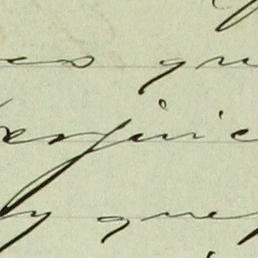 es qu
erjuic
y que